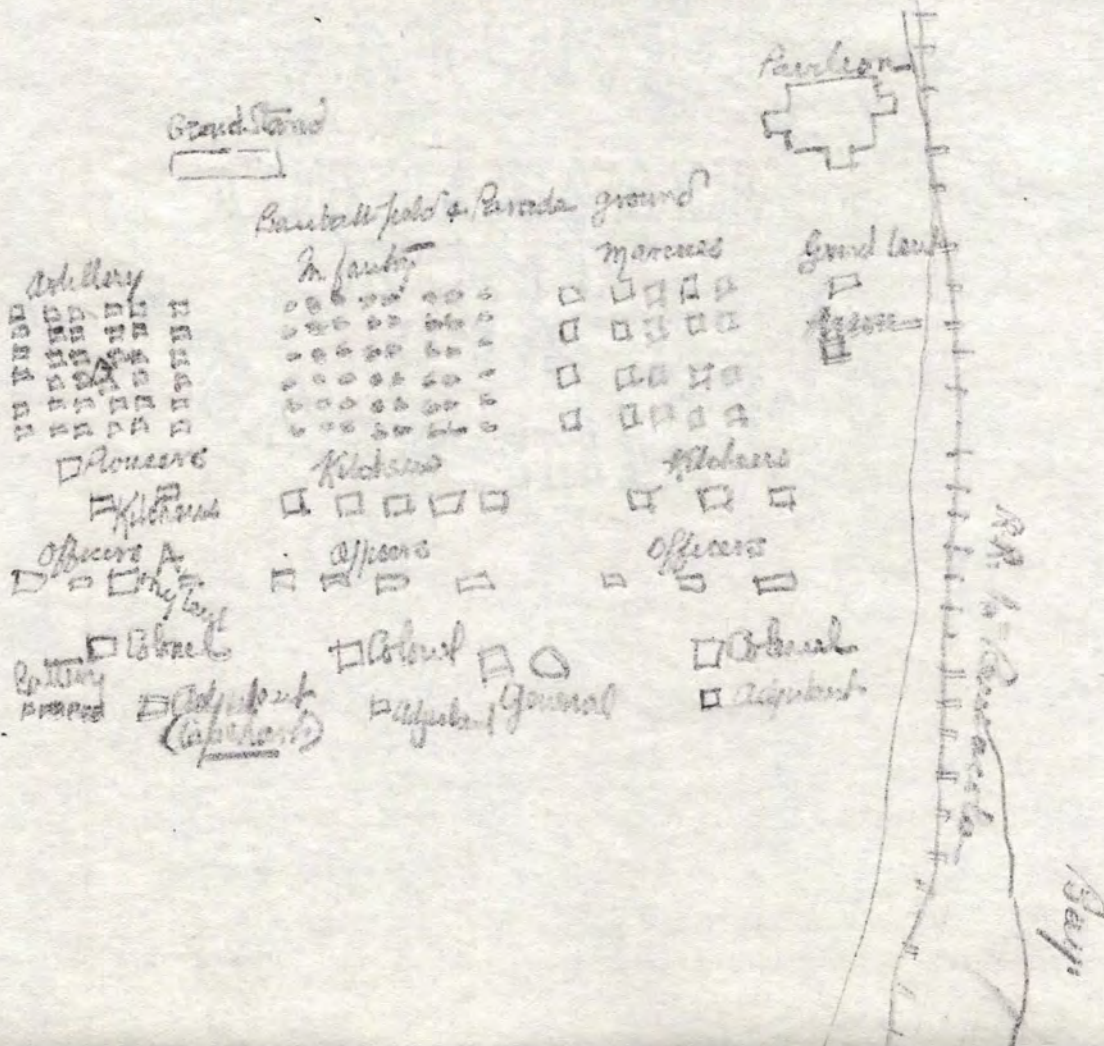 Pavilion
Grand Stand
Baseball field & Parade ground
Artillery
Infantry
Marines
Guard tent
Prison
Pioneers
Kitchens
Kitchens
Kitchens
Officers A.
My tent
Officers
Officers
Colonel
Colonel
General
Colonel
Battery
Adjutant
Adjutant
Adjutant
R.R. to Pensacola
Bay